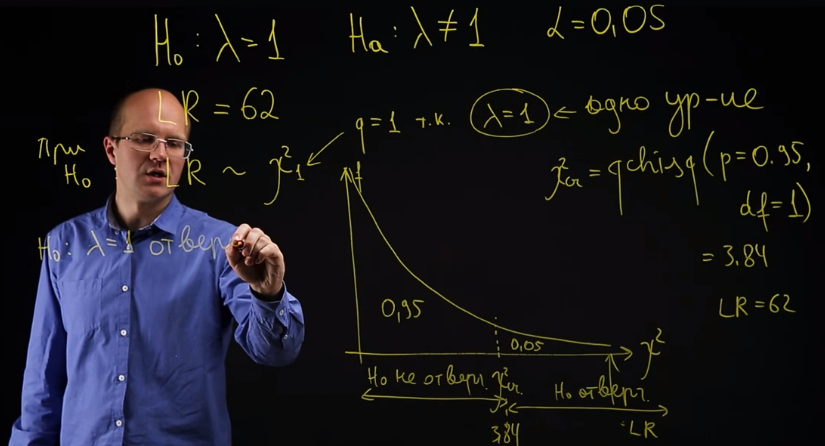 H₀: λ=1 Hₐ: λ≠1 α=0,05
LR = 62
q=1 т.к. λ=1 ← одно ур-ие
При H₀ LR ~ χ²₁
χ²cr = qchisq(p=0.95,
df=1)
= 3.84
LR=62
H₀: λ=1 отвер
f
0,95
0,05
χ²
H₀ не отверг. χ²cr
H₀ отверг.
3,84
LR